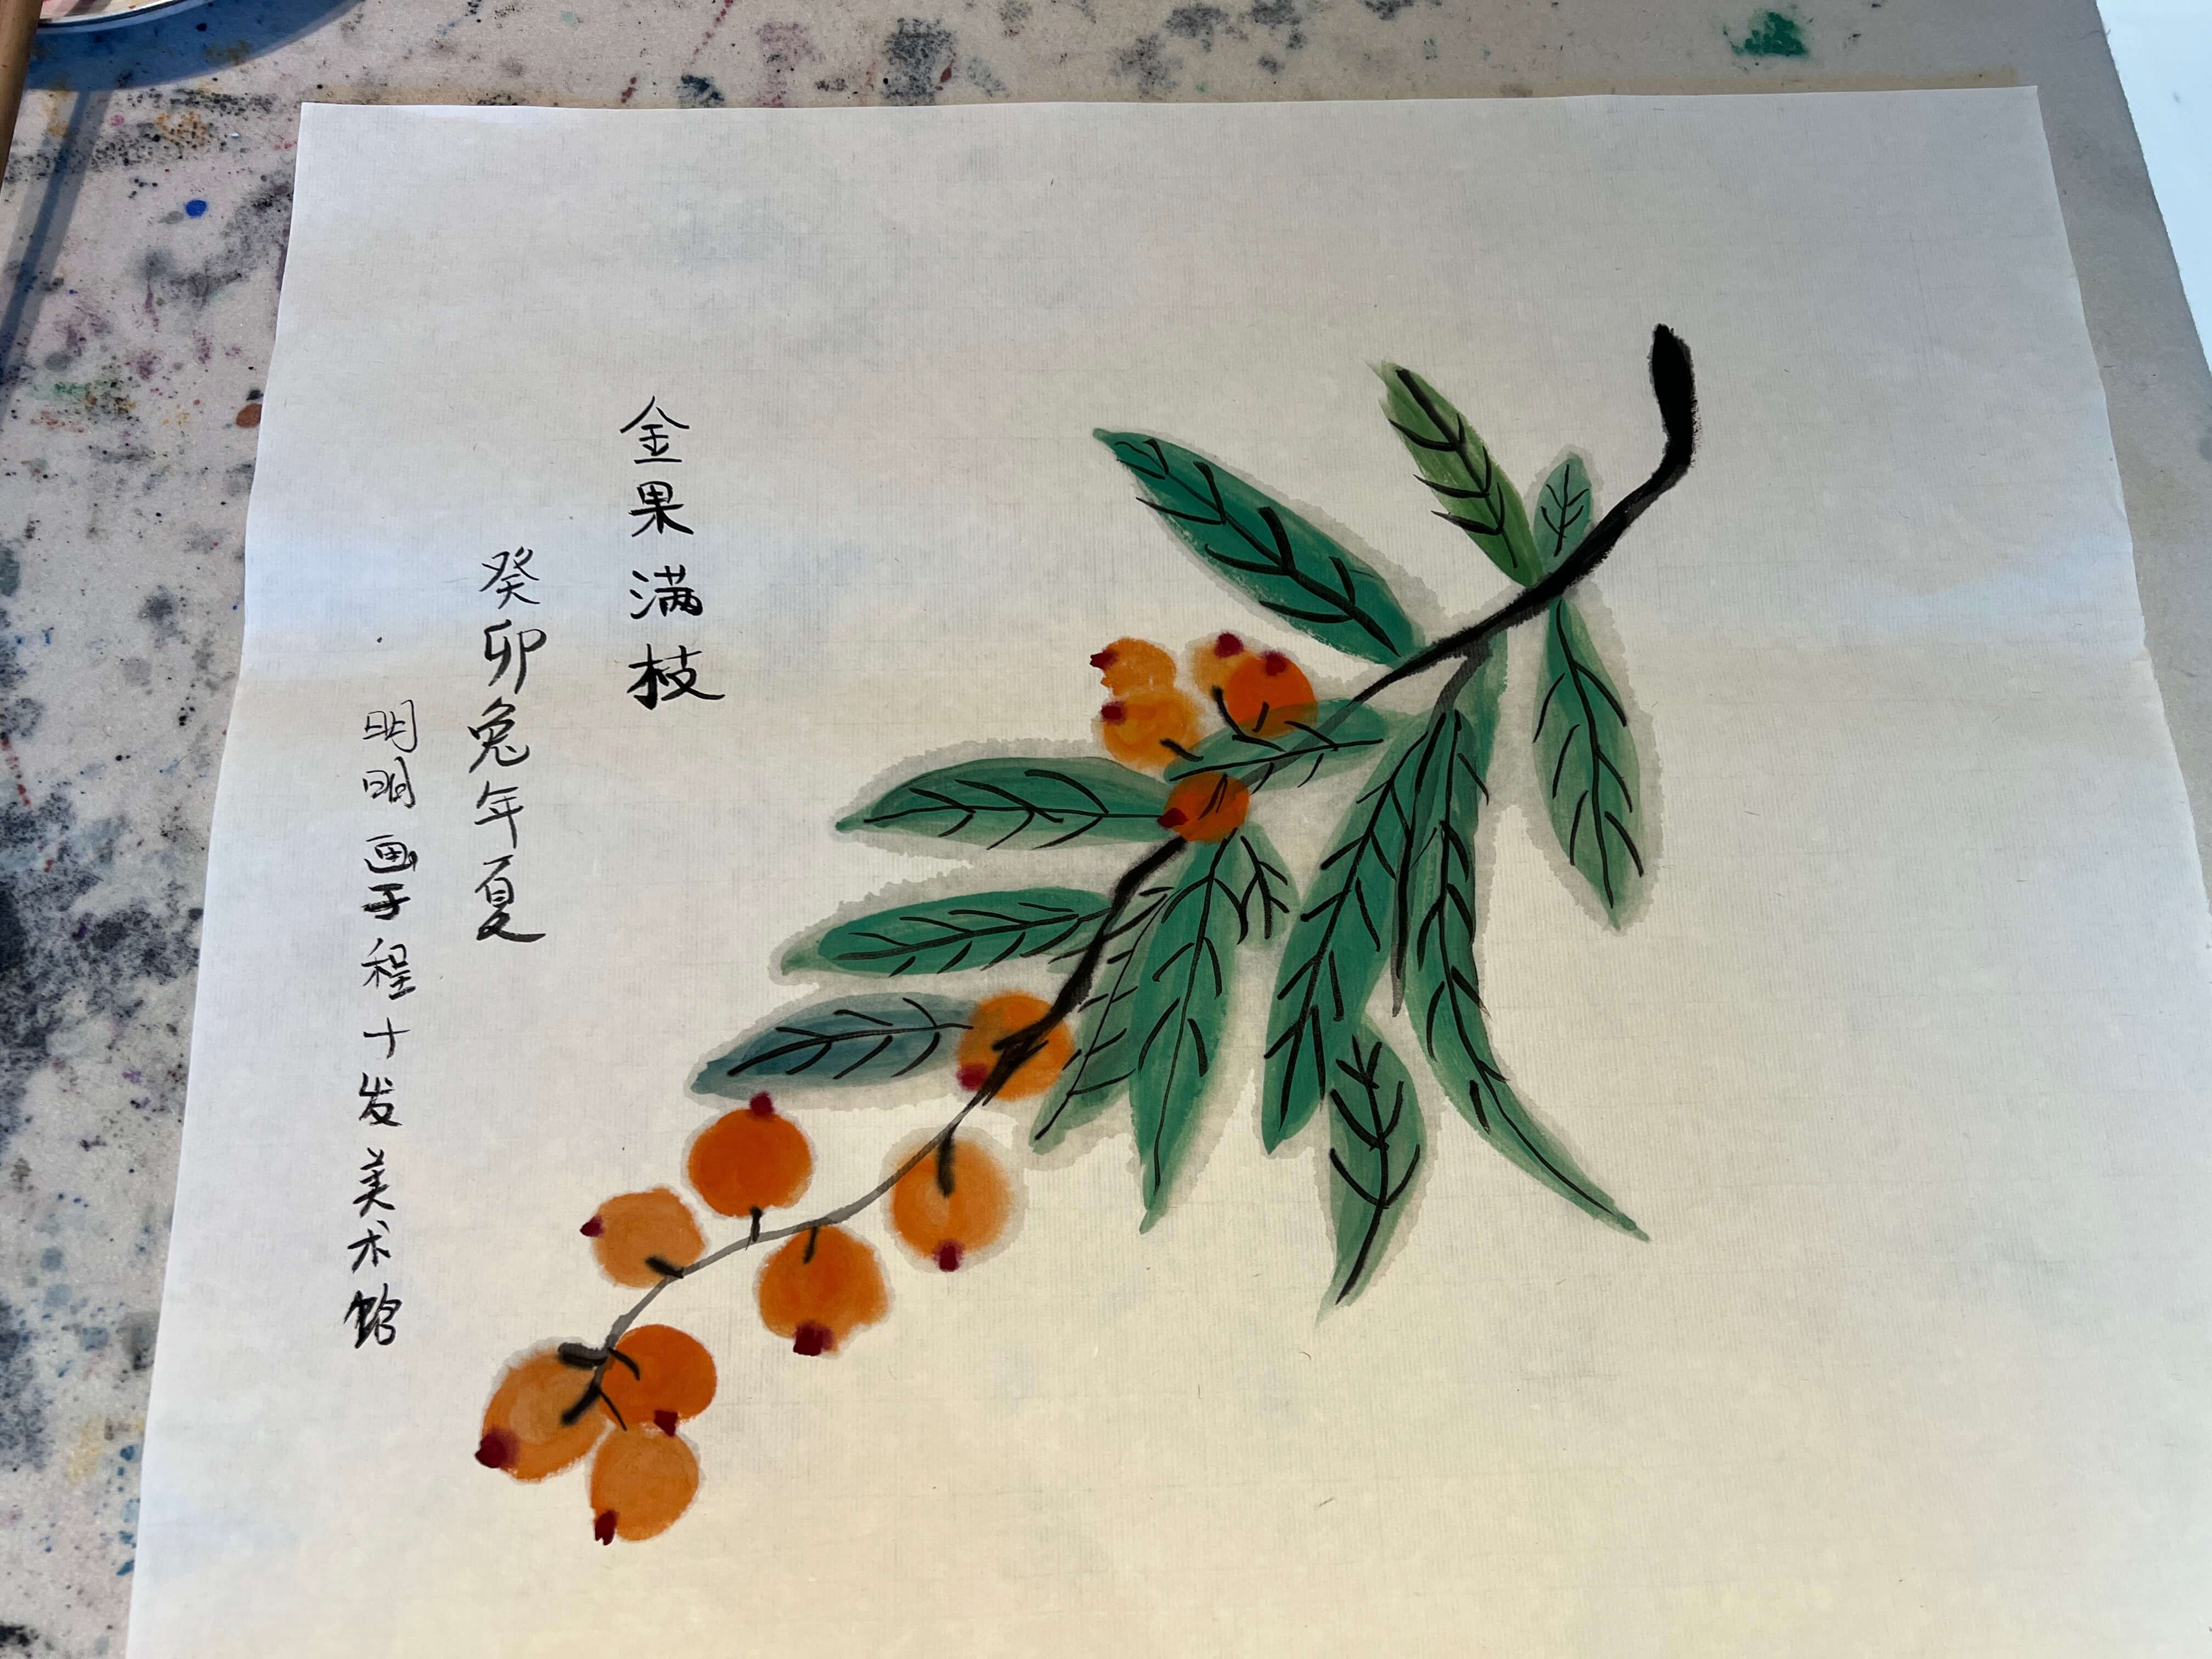 金果满枝
癸卯兔年夏
明明画于程十发美术馆